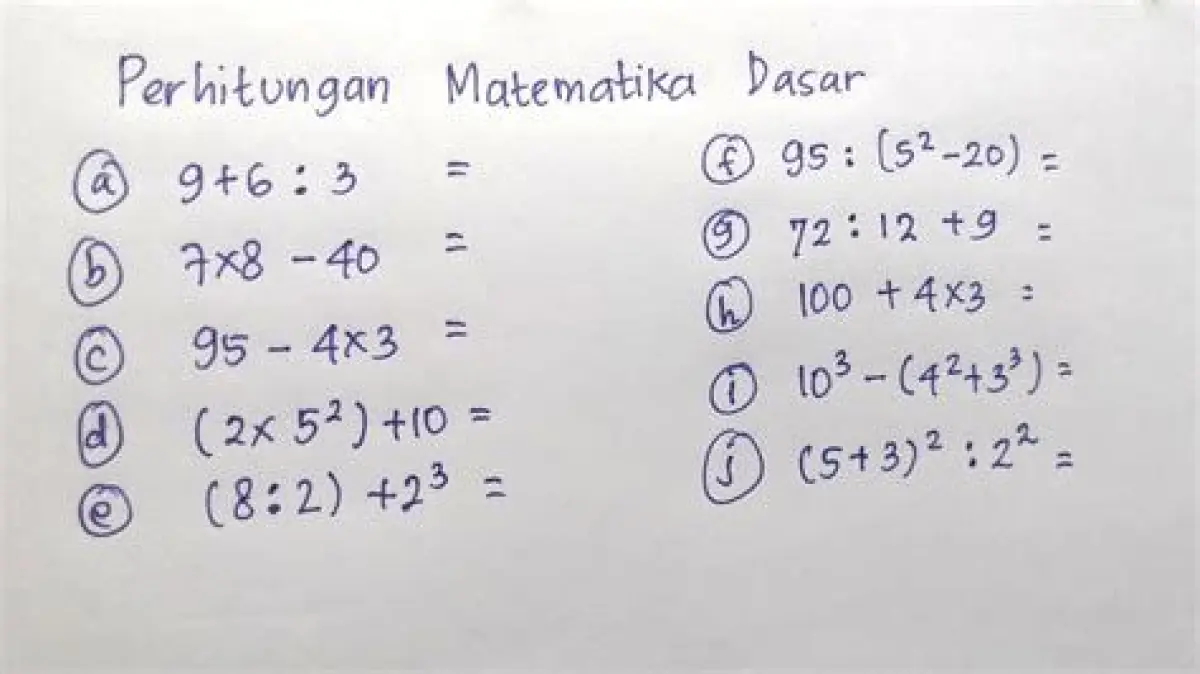 Perhitungan Matematika Dasar
ⓐ 9+6 : 3 =
ⓑ 7×8 - 40 =
ⓒ 95 - 4×3 =
ⓓ (2× 5²)+10 =
ⓔ (8:2) +2³ =
ⓕ 95 : (5²-20) =
ⓖ 72 : 12 +9 =
ⓗ 100 + 4×3 =
ⓘ 10³ - (4²+3³) =
ⓙ (5+3)² : 2² =